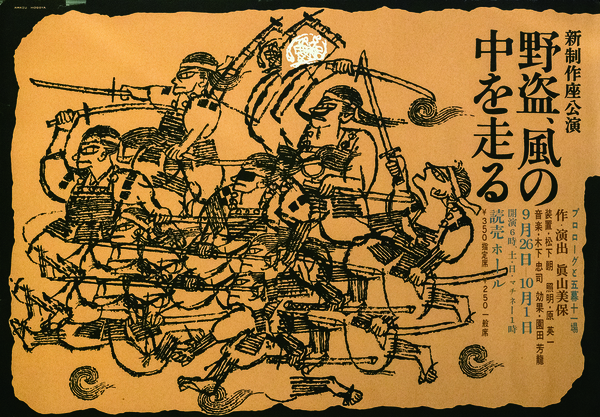 新制作座公演
野盗、風の
中を走る
プロローグと五幕十一場
作・演出 眞山美保
装置・松下朗 照明・原英一
音楽・木下忠司 効果・園田芳龍
9月26日―10月1日
開演6時 土・日・マチネー1時
読売ホール
¥350指定席・¥250一般席